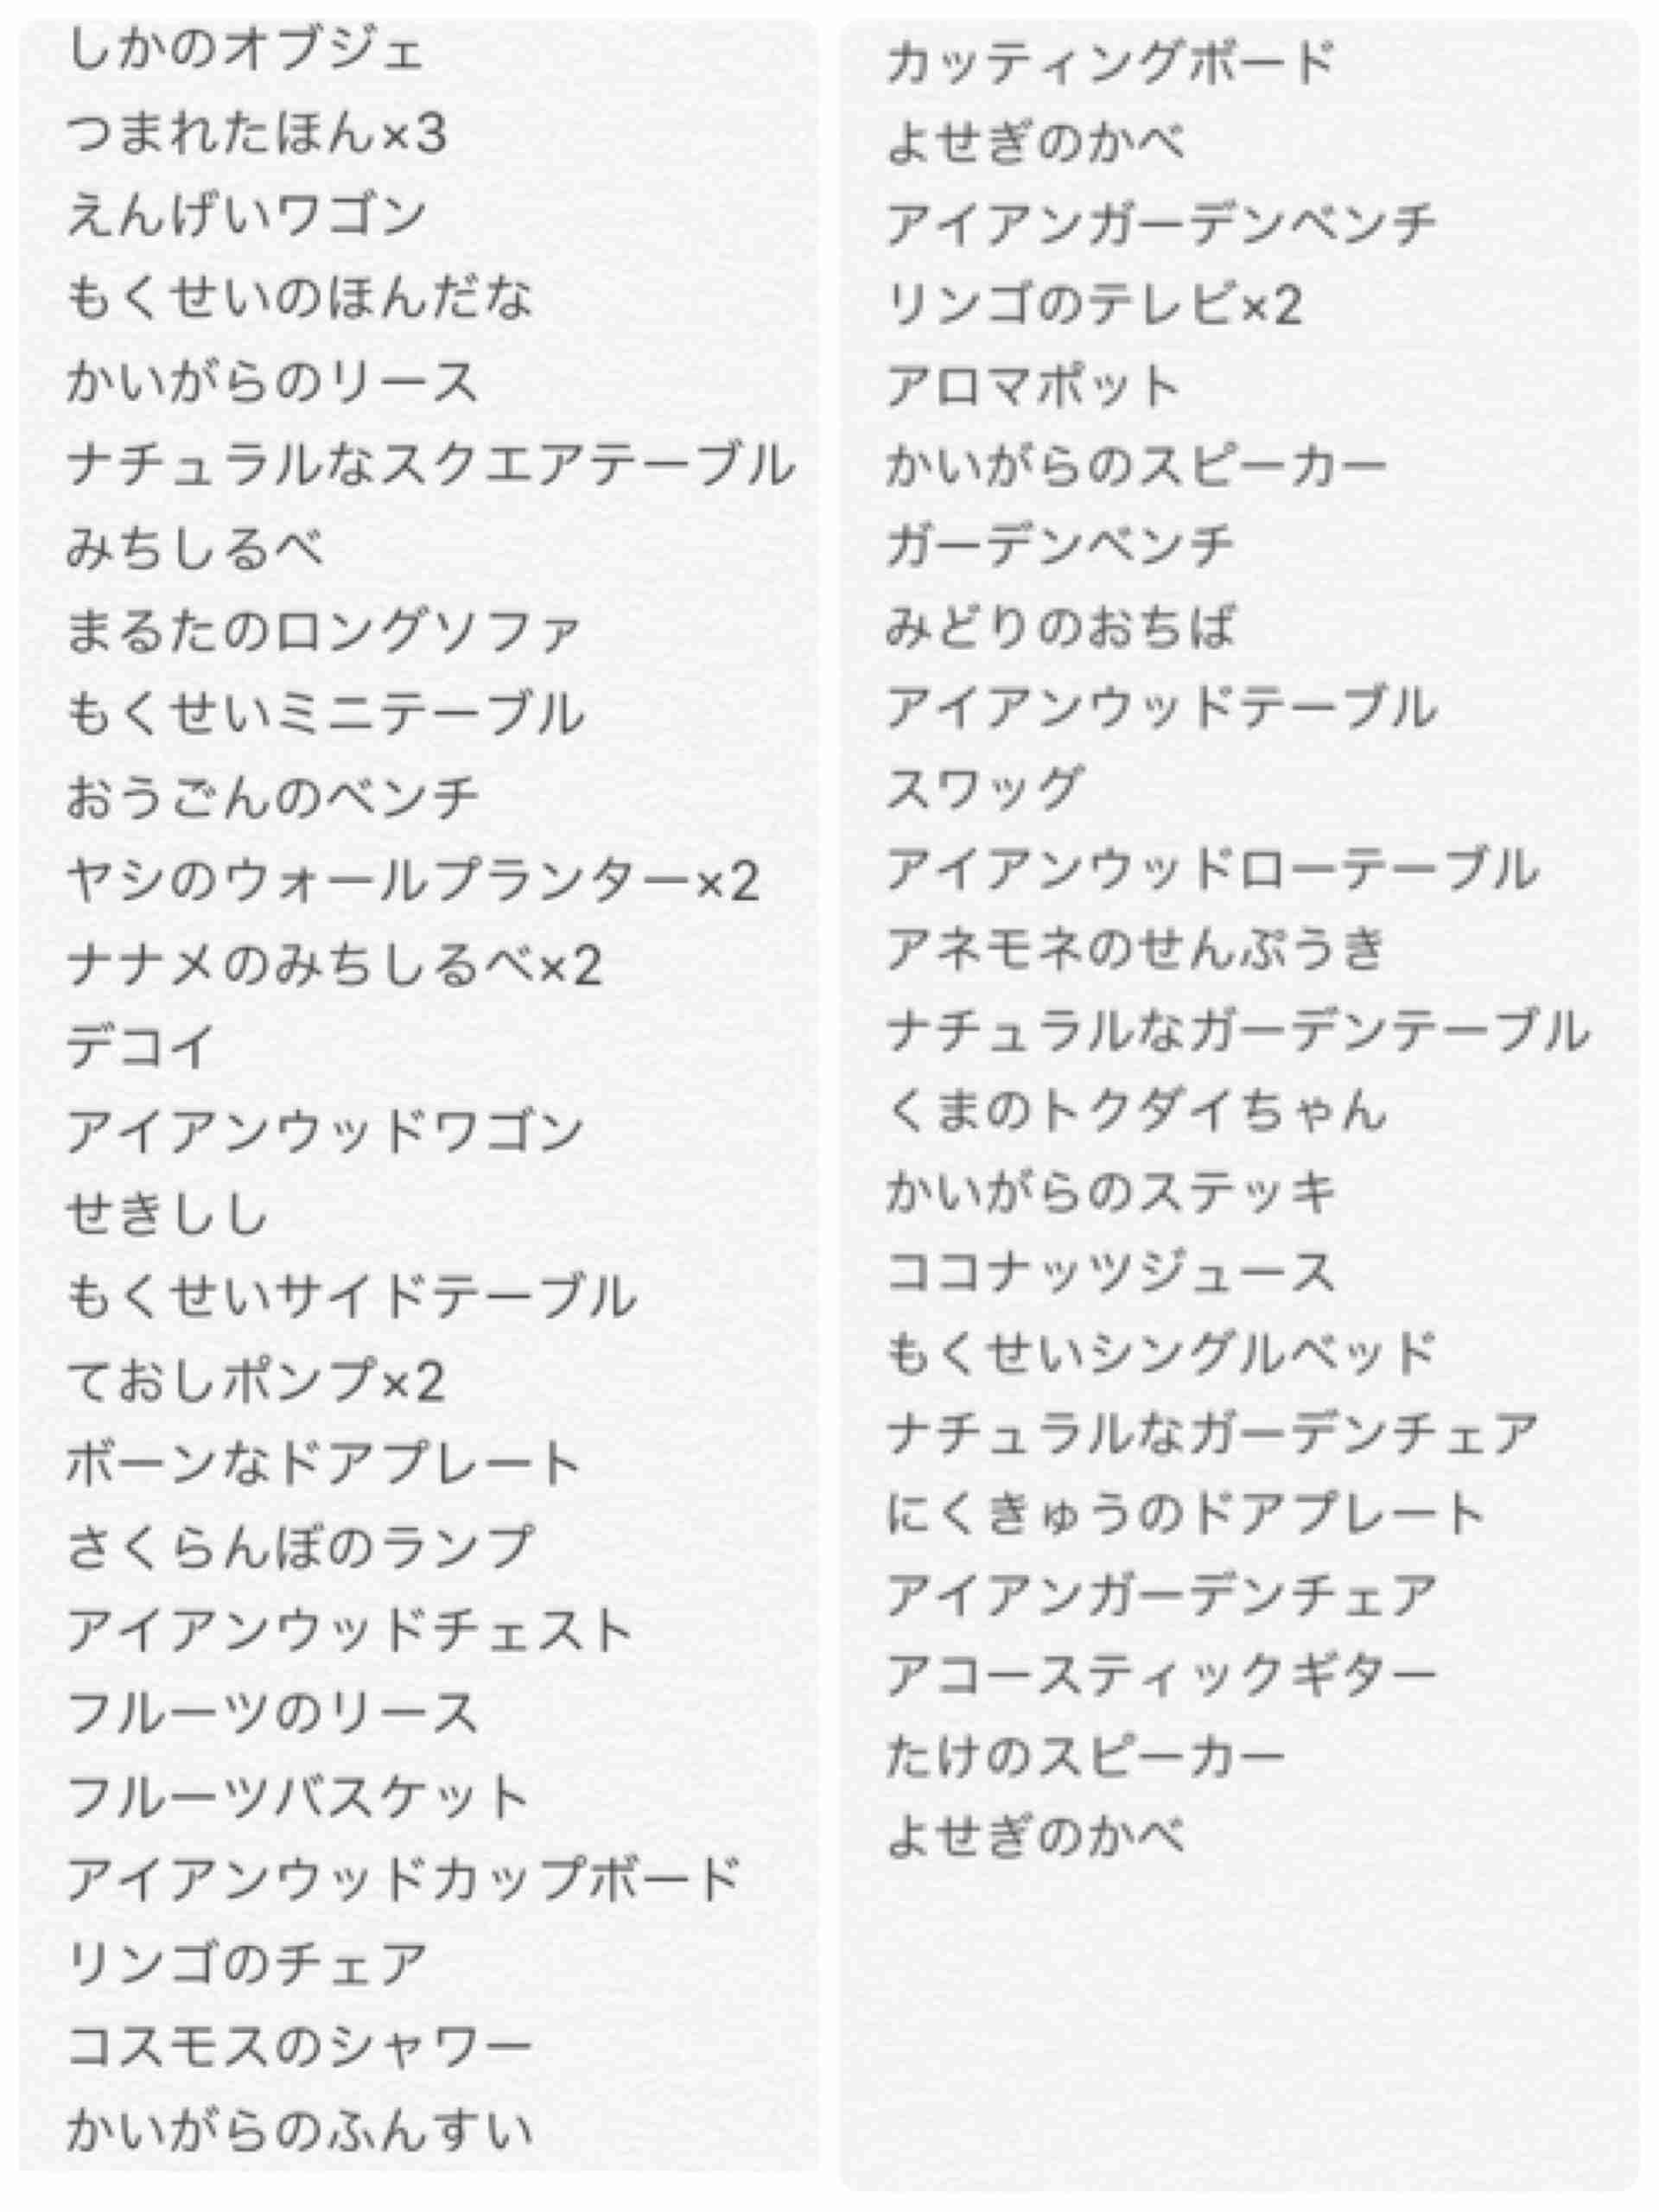 しかのオブジェ
つまれたほん×3
えんげいワゴン
もくせいのほんだな
かいがらのリース
ナチュラルなスクエアテーブル
みちしるべ
まるたのロングソファ
もくせいミニテーブル
おうごんのベンチ
ヤシのウォールプランター×2
ナナメのみちしるべ×2
デコイ
アイアンウッドワゴン
せきしし
もくせいサイドテーブル
ておしポンプ×2
ボーンなドアプレート
さくらんぼのランプ
アイアンウッドチェスト
フルーツのリース
フルーツバスケット
アイアンウッドカップボード
リンゴのチェア
コスモスのシャワー
かいがらのふんすい
カッティングボード
よせぎのかべ
アイアンガーデンベンチ
リンゴのテレビ×2
アロマポット
かいがらのスピーカー
ガーデンベンチ
みどりのおちば
アイアンウッドテーブル
スワッグ
アイアンウッドローテーブル
アネモネのせんぷうき
ナチュラルなガーデンテーブル
くまのトクダイちゃん
かいがらのステッキ
ココナッツジュース
もくせいシングルベッド
ナチュラルなガーデンチェア
にくきゅうのドアプレート
アイアンガーデンチェア
アコースティックギター
たけのスピーカー
よせぎのかべ